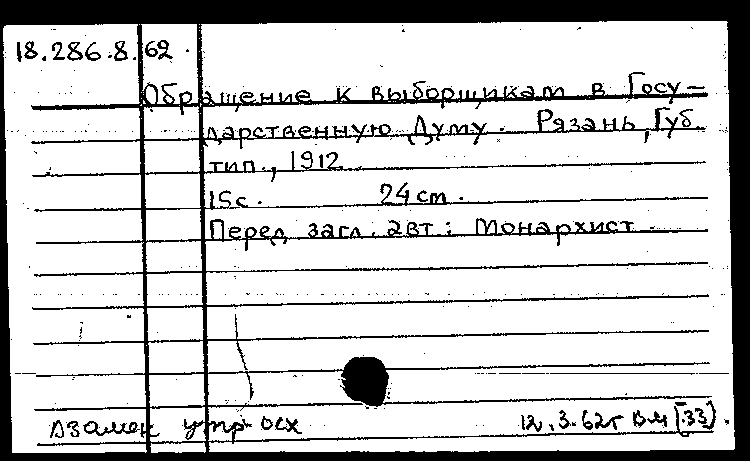 18.286.8.62.
Обращение к выборщикам в Госу-
дарственную Думу. Рязань, Губ.
тип., 1912
15с. 24cm.
Перед загл. авт: Монархист
Взамен утр. осх 12.3.62г ВМ [33].